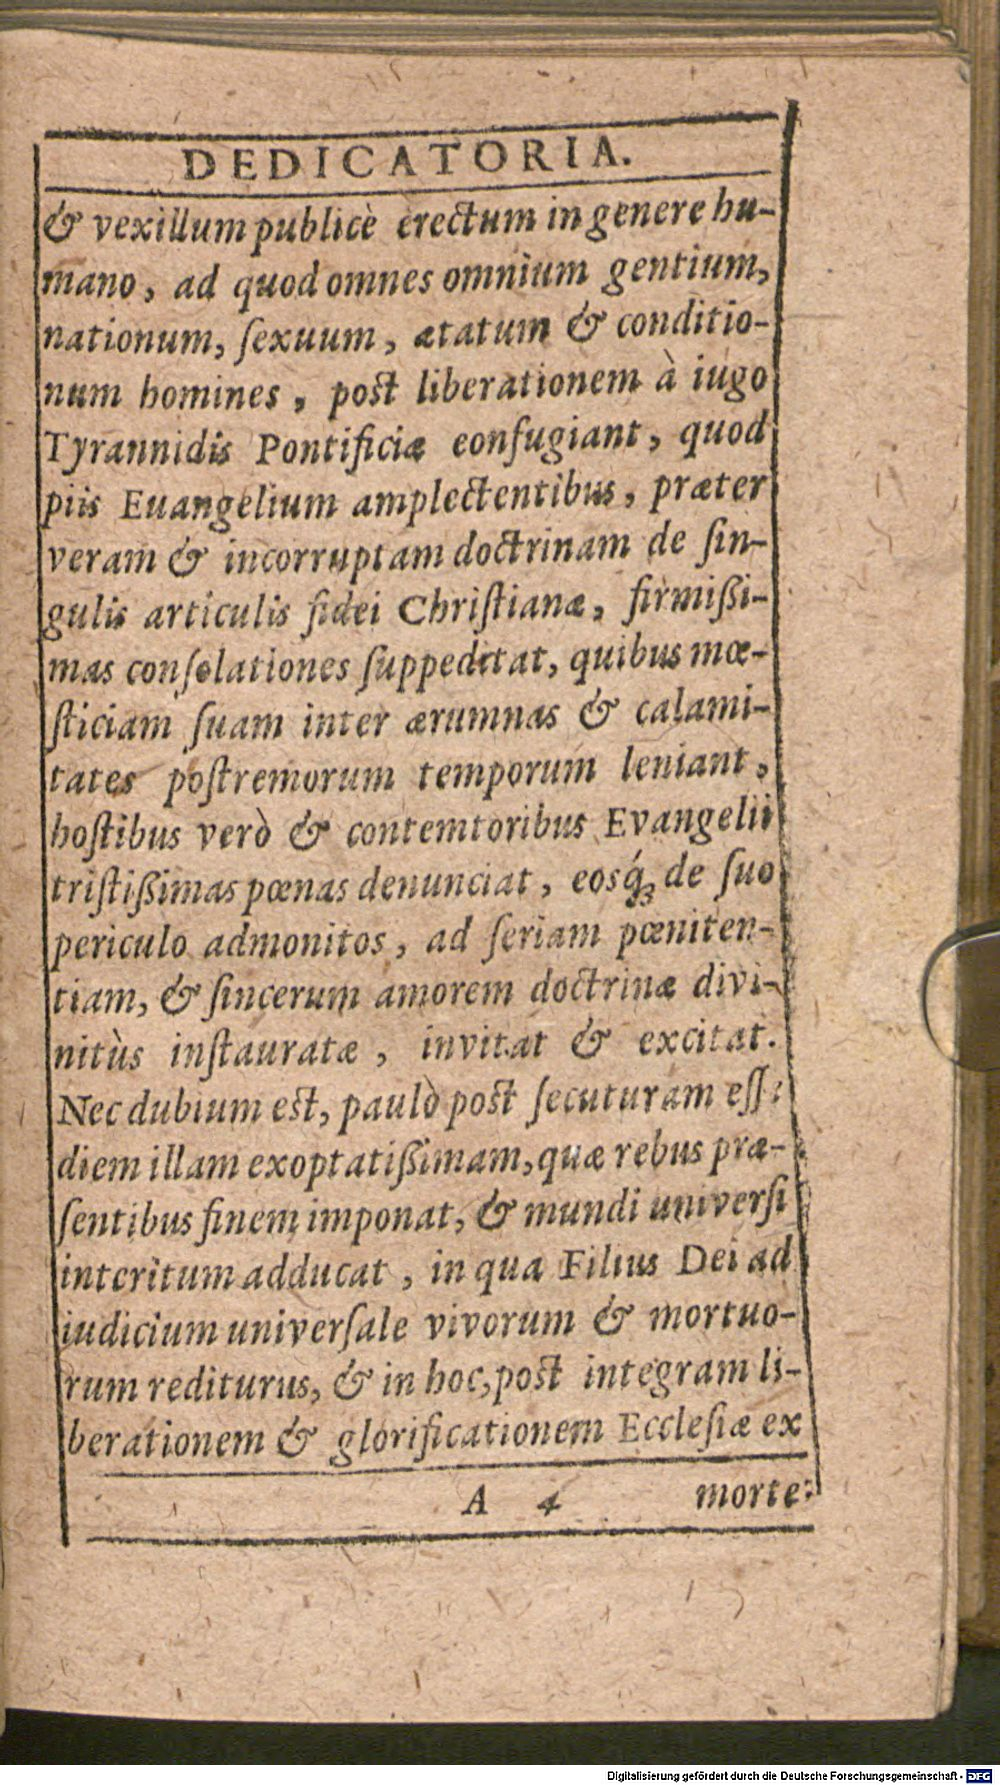 DEDICATORIA.
& vexillum publicè erectum in genere hu-
mano, ad quod omnes omnium gentium,
nationum, ſexuum, ætatum & conditio-
num homines, post liberationem à iugo
Tyrannidis Pontificiæ confugiant, quod
piis Euangelium amplectentibus, præter
veram & incorruptam doctrinam de ſin-
gulis articulis fidei Chriſtianæ, firmißi-
mas conſolationes ſuppeditat, quibus mœ-
ſticiam ſuam inter ærumnas & calami-
tates poſtremorum temporum leniant,
hoſtibus verò & contemtoribus Evangelii
triſtißimas pœnas denunciat, eosq́ꝫ de ſuo
periculo admonitos, ad ſeriam pœniten-
tiam, & ſincerum amorem doctrinæ divi-
nitùs inſtauratæ, invitat & excitat.
Nec dubium est, paulò post ſecuturam eſſe
diem illam exoptatißimam, quæ rebus præ-
ſentibus finem imponat, & mundi univerſi
interitum adducat, in qua Filius Dei ad
iudicium univerſale vivorum & mortuo-
rum rediturus, & in hoc, post integram li-
berationem & glorificationem Eccleſiæ ex
A 4 morte:
Digitalisierung gefördert durch die Deutsche Forschungsgemeinschaft - DFG